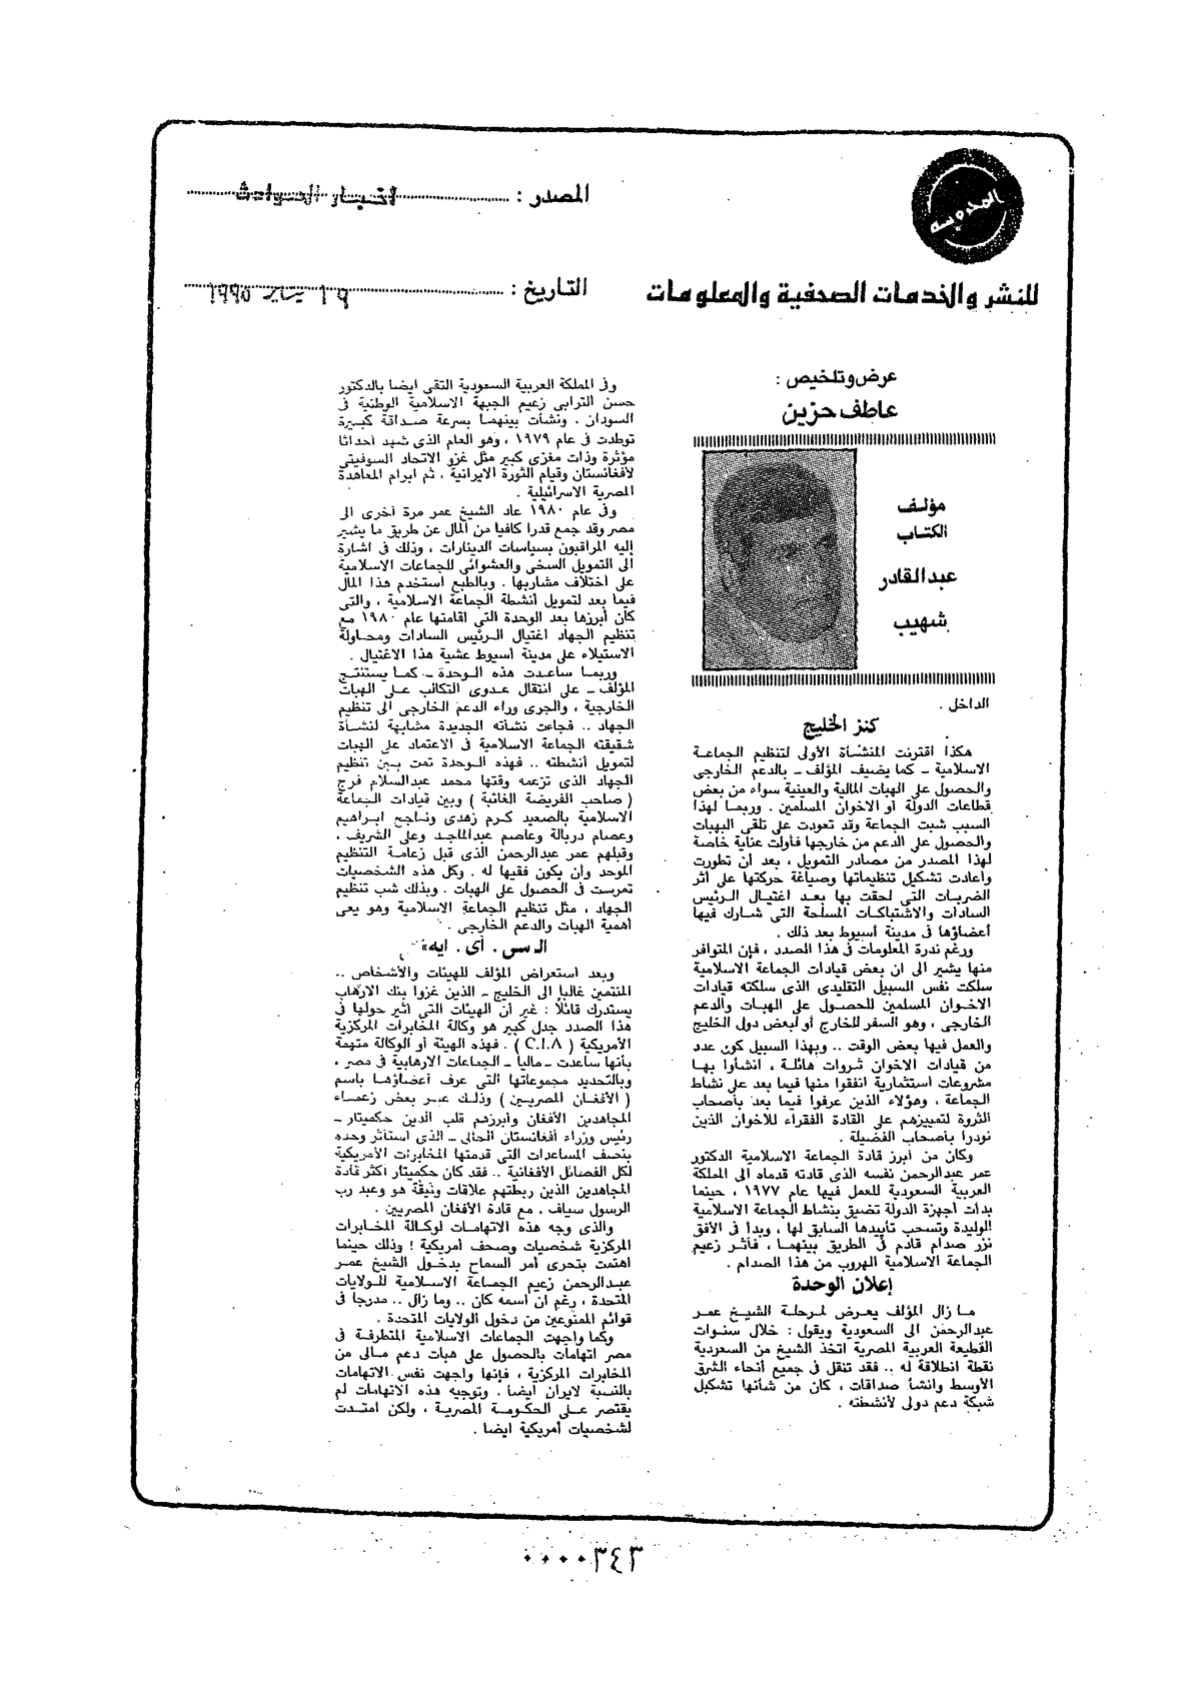 المحروسه
المصدر : اخبار الحوادث
للنشر والخدمات الصحفية والمعلومات
التاريخ : ١٩ يناير ١٩٩٥
عرض وتلخيص :
عاطف حزين
مؤلف
الكتاب
عبد القادر
شهيب
الداخل .
كنز الخليج
هكذا اقترنت المنشأة الأولى لتنظيم الجماعة
الاسلامية ـ كما يضيف المؤلف ـ بالدعم الخارجى
والحصول على الهبات المالية والعينية سواء من بعض
قطاعات الدولة أو الاخوان المسلمين . وربما لهذا
السبب شبت الجماعة وقد تعودت على تلقى الهبات
والحصول على الدعم من خارجها فأولت عناية خاصة
لهذا المصدر من مصادر التمويل ، بعد أن تطورت
واعادت تشكيل تنظيماتها وصياغة حركتها على أثر
الضربات التى لحقت بها بعد اغتيال الرئيس
السادات والاشتباكات المسلحة التى شارك فيها
أعضاؤها فى مدينة أسيوط بعد ذلك .
ورغم ندرة المعلومات فى هذا الصدد ، فإن المتوافر
منها يشير الى ان بعض قيادات الجماعة الاسلامية
سلكت نفس السبيل التقليدى الذى سلكته قيادات
الاخوان المسلمين للحصول على الهبات والدعم
الخارجى ، وهو السفر للخارج أو لبعض دول الخليج
والعمل فيها بعض الوقت .. وبهذا السبيل كون عدد
من قيادات الاخوان ثروات هائلة ، انشأوا بها
مشروعات استثمارية انفقوا منها فيما بعد على نشاط
الجماعة ، وهؤلاء الذين عرفوا فيما بعد بأصحاب
الثروة لتمييزهم على القادة الفقراء للاخوان الذين
نودوا بأصحاب الفضيلة .
وكان من أبرز قادة الجماعة الاسلامية الدكتور
عمر عبدالرحمن نفسه الذى قادته قدماه الى المملكة
العربية السعودية للعمل فيها عام ١٩٧٧ ، حينما
بدأت أجهزة الدولة تضيق بنشاط الجماعة الاسلامية
الوليدة وتسحب تأييدها السابق لها ، وبدأ فى الأفق
نزر صدام قادم فى الطريق بينهما ، فأثر زعيم
الجماعة الاسلامية الهروب من هذا الصدام .
إعلان الوحدة
ما زال المؤلف يعرض لمرحلة الشيخ عمر
عبدالرحمن الى السعودية ويقول : خلال سنوات
القطيعة العربية المصرية اتخذ الشيخ من السعودية
نقطة انطلاقة له .. فقد تنقل فى جميع أنحاء الشرق
الأوسط وانشأ صداقات ، كان من شأنها تشكيل
شبكة دعم دولى لأنشطته .
وفى المملكة العربية السعودية التقى ايضا بالدكتور
حسن الترابى زعيم الجبهة الاسلامية الوطنية فى
السودان . ونشأت بينهما بسرعة صداقة كبيرة
توطدت فى عام ١٩٧٩ ، وهو العام الذى شهد أحداثا
مؤثرة وذات مغزى كبير مثل غزو الاتحاد السوفيتى
لأفغانستان وقيام الثورة الايرانية ، ثم ابرام المعاهدة
المصرية الاسرائيلية .
وفى عام ١٩٨٠ عاد الشيخ عمر مرة أخرى الى
مصر وقد جمع قدرا كافيا من المال عن طريق ما يشير
إليه المراقبون بسياسات الدينارات ، وذلك فى اشارة
الى التمويل السخى والعشوائى للجماعات الاسلامية
على اختلاف مشاربها . وبالطبع استخدم هذا المال
فيما بعد لتمويل أنشطة الجماعة الاسلامية ، والتى
كان أبرزها بعد الوحدة التى اقامتها عام ١٩٨٠ مع
تنظيم الجهاد اغتيال الرئيس السادات ومحاولة
الاستيلاء على مدينة أسيوط عشية هذا الاغتيال .
وربما ساعدت هذه الوحدة ـ كما يستنتج
المؤلف ـ على انتقال عدوى التكالب على الهبات
الخارجية ، والجرى وراء الدعم الخارجى الى تنظيم
الجهاد .. فجاءت نشأته الجديدة مشابهة لنشأة
شقيقته الجماعة الاسلامية فى الاعتماد على الهبات
لتمويل أنشطته .. فهذه الوحدة تمت بين تنظيم
الجهاد الذى تزعمه وقتها محمد عبدالسلام فرج
( صاحب الفريضة الغائبة ) وبين قيادات الجماعة
الاسلامية بالصعيد كرم زهدى وناجح ابراهيم
وعصام دربالة وعاصم عبدالماجد وعلى الشريف ،
وقبلهم عمر عبدالرحمن الذى قبل زعامة التنظيم
الموحد وأن يكون فقيها له . وكل هذه الشخصيات
تمرست فى الحصول على الهبات . وبذلك شب تنظيم
الجهاد ، مثل تنظيم الجماعة الاسلامية وهو يعى
أهمية الهبات والدعم الخارجى .
الـ سى . أى . ايه
وبعد استعراض المؤلف للهيئات والأشخاص ..
المنتمين غالبا الى الخليج ـ الذين غزوا بنك الارهاب
يستدرك قائلا : غير أن الهيئات التى أثير حولها فى
هذا الصدد جدل كبير هو وكالة المخابرات المركزية
الأمريكية ( C.I.A ) . فهذه الهيئة أو الوكالة متهمة
بأنها ساعدت ـ ماليا ـ الجماعات الارهابية فى مصر ،
وبالتحديد مجموعاتها التى عرف أعضاؤها باسم
( الأفغان المصريين ) وذلك عبر بعض زعماء
المجاهدين الأفغان وأبرزهم قلب الدين حكميتار ـ
رئيس وزراء أفغانستان الحالى ـ الذى استأثر وحده
بنصف المساعدات التى قدمتها المخابرات الأمريكية
لكل الفصائل الأفغانية .. فقد كان حكميتار أكثر قادة
المجاهدين الذين ربطتهم علاقات وثيقة هو وعبد رب
الرسول سياف ، مع قادة الأفغان المصريين .
والذى وجه هذه الاتهامات لوكالة المخابرات
المركزية شخصيات وصحف أمريكية ! وذلك حينما
اهتمت بتحرى أمر السماح بدخول الشيخ عمر
عبدالرحمن زعيم الجماعة الاسلامية للولايات
المتحدة ، رغم ان أسمه كان .. وما زال .. مدرجا فى
قوائم الممنوعين من دخول الولايات المتحدة .
وكما واجهت الجماعات الاسلامية المتطرفة فى
مصر اتهامات بالحصول على هبات دعم مالى من
المخابرات المركزية ، فإنها واجهت نفس الاتهامات
بالنسبة لايران أيضا . وتوجيه هذه الاتهامات لم
يقتصر على الحكومة المصرية ، ولكن امتدت
لشخصيات أمريكية ايضا .
٠٠٠٠٣٤٣